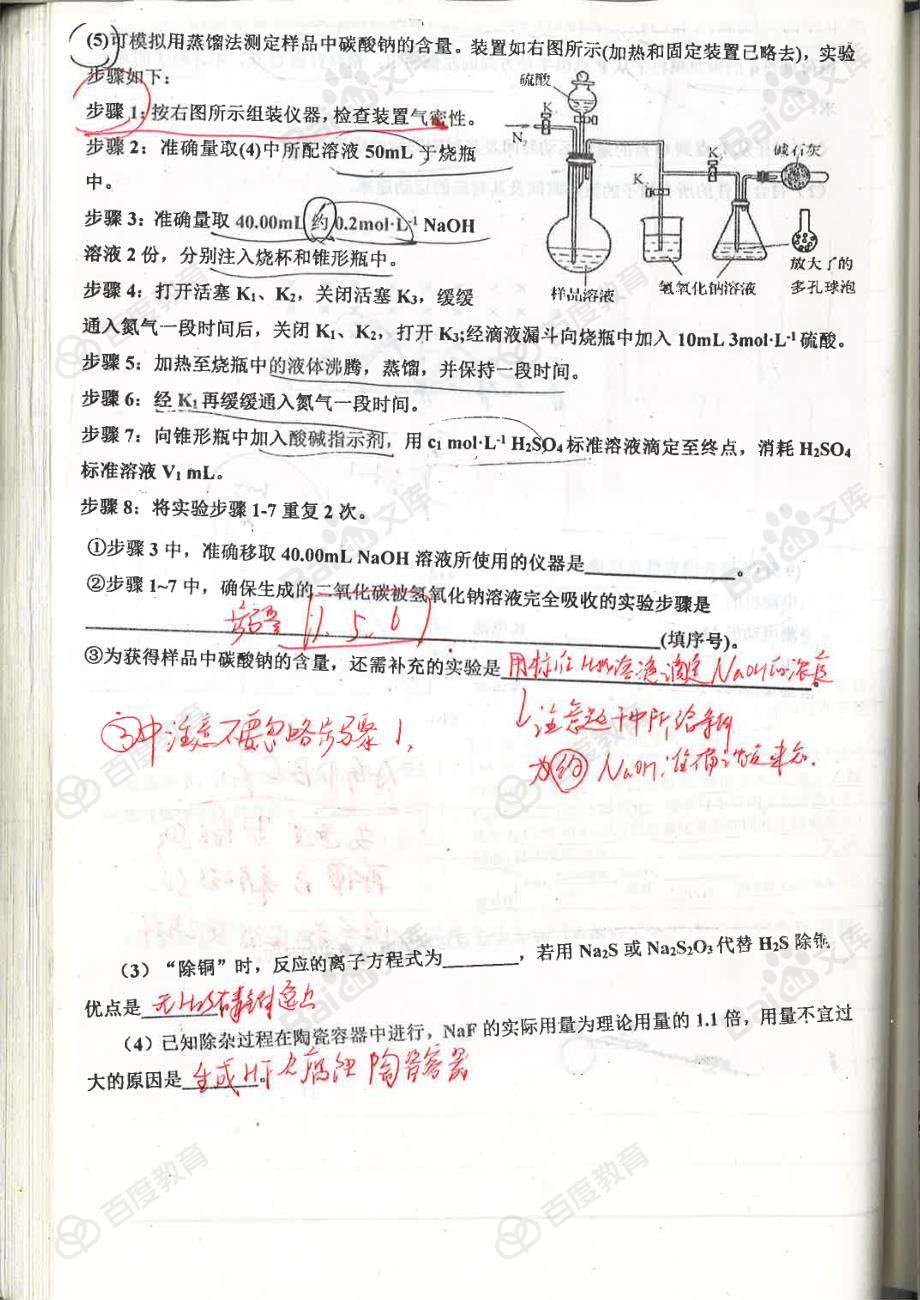 (5)可模拟用蒸馏法测定样品中碳酸钠的含量。装置如右图所示(加热和固定装置已略去)，实验
步骤如下：
步骤 1：按右图所示组装仪器，检查装置气密性。
步骤 2：准确量取(4)中所配溶液 50mL 于烧瓶
中。
步骤 3：准确量取 40.00mL 约 0.2mol·L⁻¹ NaOH
溶液 2 份，分别注入烧杯和锥形瓶中。
步骤 4：打开活塞 K₁、K₂，关闭活塞 K₃，缓缓
通入氮气一段时间后，关闭 K₁、K₂，打开 K₃;经滴液漏斗向烧瓶中加入 10mL 3mol·L⁻¹ 硫酸。
步骤 5：加热至烧瓶中的液体沸腾，蒸馏，并保持一段时间。
步骤 6：经 K₁ 再缓缓通入氮气一段时间。
步骤 7：向锥形瓶中加入酸碱指示剂，用 c₁ mol·L⁻¹ H₂SO₄ 标准溶液滴定至终点，消耗 H₂SO₄
标准溶液 V₁ mL。
步骤 8：将实验步骤 1-7 重复 2 次。
硫酸
K
N₂
K
K
碱石灰
样品溶液
氢氧化钠溶液
放大了的
多孔球泡
①步骤 3 中，准确移取 40.00mL NaOH 溶液所使用的仪器是 。
②步骤 1~7 中，确保生成的二氧化碳被氢氧化钠溶液完全吸收的实验步骤是
步骤 1、5、6 (填序号)。
③为获得样品中碳酸钠的含量，还需补充的实验是 用标准 溶液滴定 NaOH的浓度 。
③中注意不要忽略步骤 1，
注意题干中所给条件
为约 NaOH，准确浓度未知.
(3) “除铜”时，反应的离子方程式为 ，若用 Na₂S 或 Na₂S₂O₃ 代替 H₂S 除铜，
优点是 无H₂S 逸出
(4) 已知除杂过程在陶瓷容器中进行，NaF 的实际用量为理论用量的 1.1 倍，用量不宜过
大的原因是 生成HF会腐蚀陶瓷容器 。
百度教育
Baidu文库